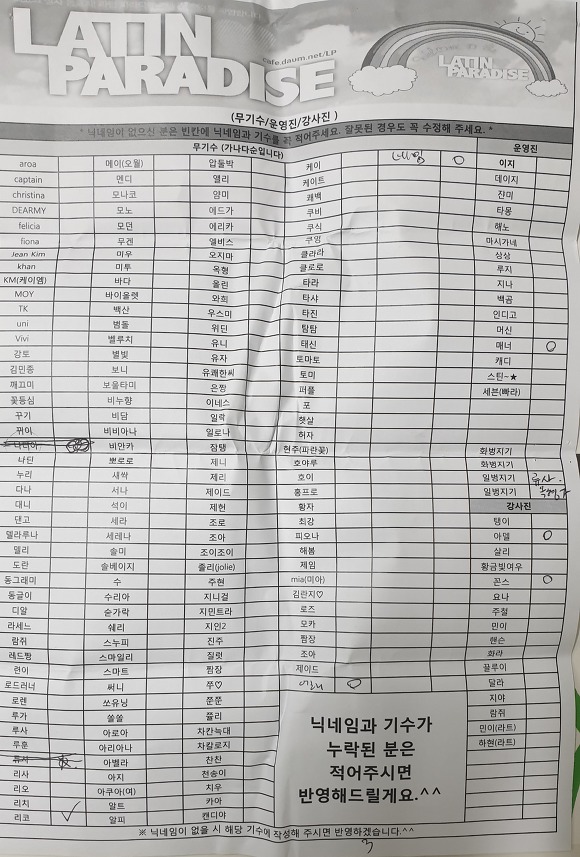 LATIN PARADISE
cafe.daum.net/LP
LATIN PARADISE
(무기수/운영진/강사진 )
* 닉네임이 없으신 분은 빈칸에 닉네임과 기수를 꼭 적어주세요. 잘못된 경우도 꼭 수정해 주세요. *
무기수 (가나다순입니다)
aroa
captain
christina
DEARMY
felicia
fiona
Jean Kim
khan
KM(케이엠)
MOY
TK
uni
Vivi
강토
김민종
깨끄미
꽃등심
꾸기
뀌이
나딘
누리
다나
대니
댄고
델라루나
델리
도란
동그래미
둥글이
디얄
라세느
람쥐
레드짱
련이
로드러너
로렌
루가
루사
루훈
리사
리오
리치
리코
메이(오월)
멘디
모나코
모노
모던
무겐
미우
미투
바다
바이올렛
백산
범둘
벨루치
별빛
보니
보울타미
비누향
비담
비비아나
비안카
뽀로로
새싹
서나
석이
세라
세레나
솔미
솔베이지
수
수리아
숟가락
쉐리
스누피
스마일리
스마트
써니
쏘유닝
쏠쏠
아로아
아리아나
아벨라
아지
아쿠아(여)
알트
알피
압둘박
앨리
양미
에드가
에리카
엘비스
오지마
옥형
올린
와희
우스미
위딘
유니
유자
유쾌한씨
은짱
이네스
일락
일로나
잠탱
제니
제리
제이드
제헌
조로
조아
조이조이
졸리(jolie)
주현
지니걸
지민트라
지인2
진주
질럿
짬장
쭈♡
쭌쭌
쥴리
차칸늑대
차칼로지
찬찬
천송이
치우
카아
캔디야
케이
케이트
쾌백
쿠비
쿠식
쿠영
클라라
클로로
타라
타샤
타진
탐탐
태신
토마토
토미
퍼플
포
햇살
허자
현주(파란꽃)
호야루
호이
홍프로
황자
최강
피오나
해봄
제임
mia(미아)
김란지♡
로즈
모카
짬장
조아
제이드
운영진
이지
데이지
쟌미
타몽
해노
마시가네
상상
루지
지나
백곰
인디고
머신
매너
캐디
스틴~★
세븐(빠라)
화병지기
화병지기
일병지기
일병지기
강사진
탱이
아델
살리
황금빛여우
꼰스
요나
주절
민이
핸슨
화라
끌루이
달라
지야
람쥐
민이(라트)
하현(라트)
닉네임과 기수가
누락된 분은
적어주시면
반영해드릴게요.^^
※ 닉네임이 없을 시 해당 기수에 작성해 주시면 반영하겠습니다.^^
3